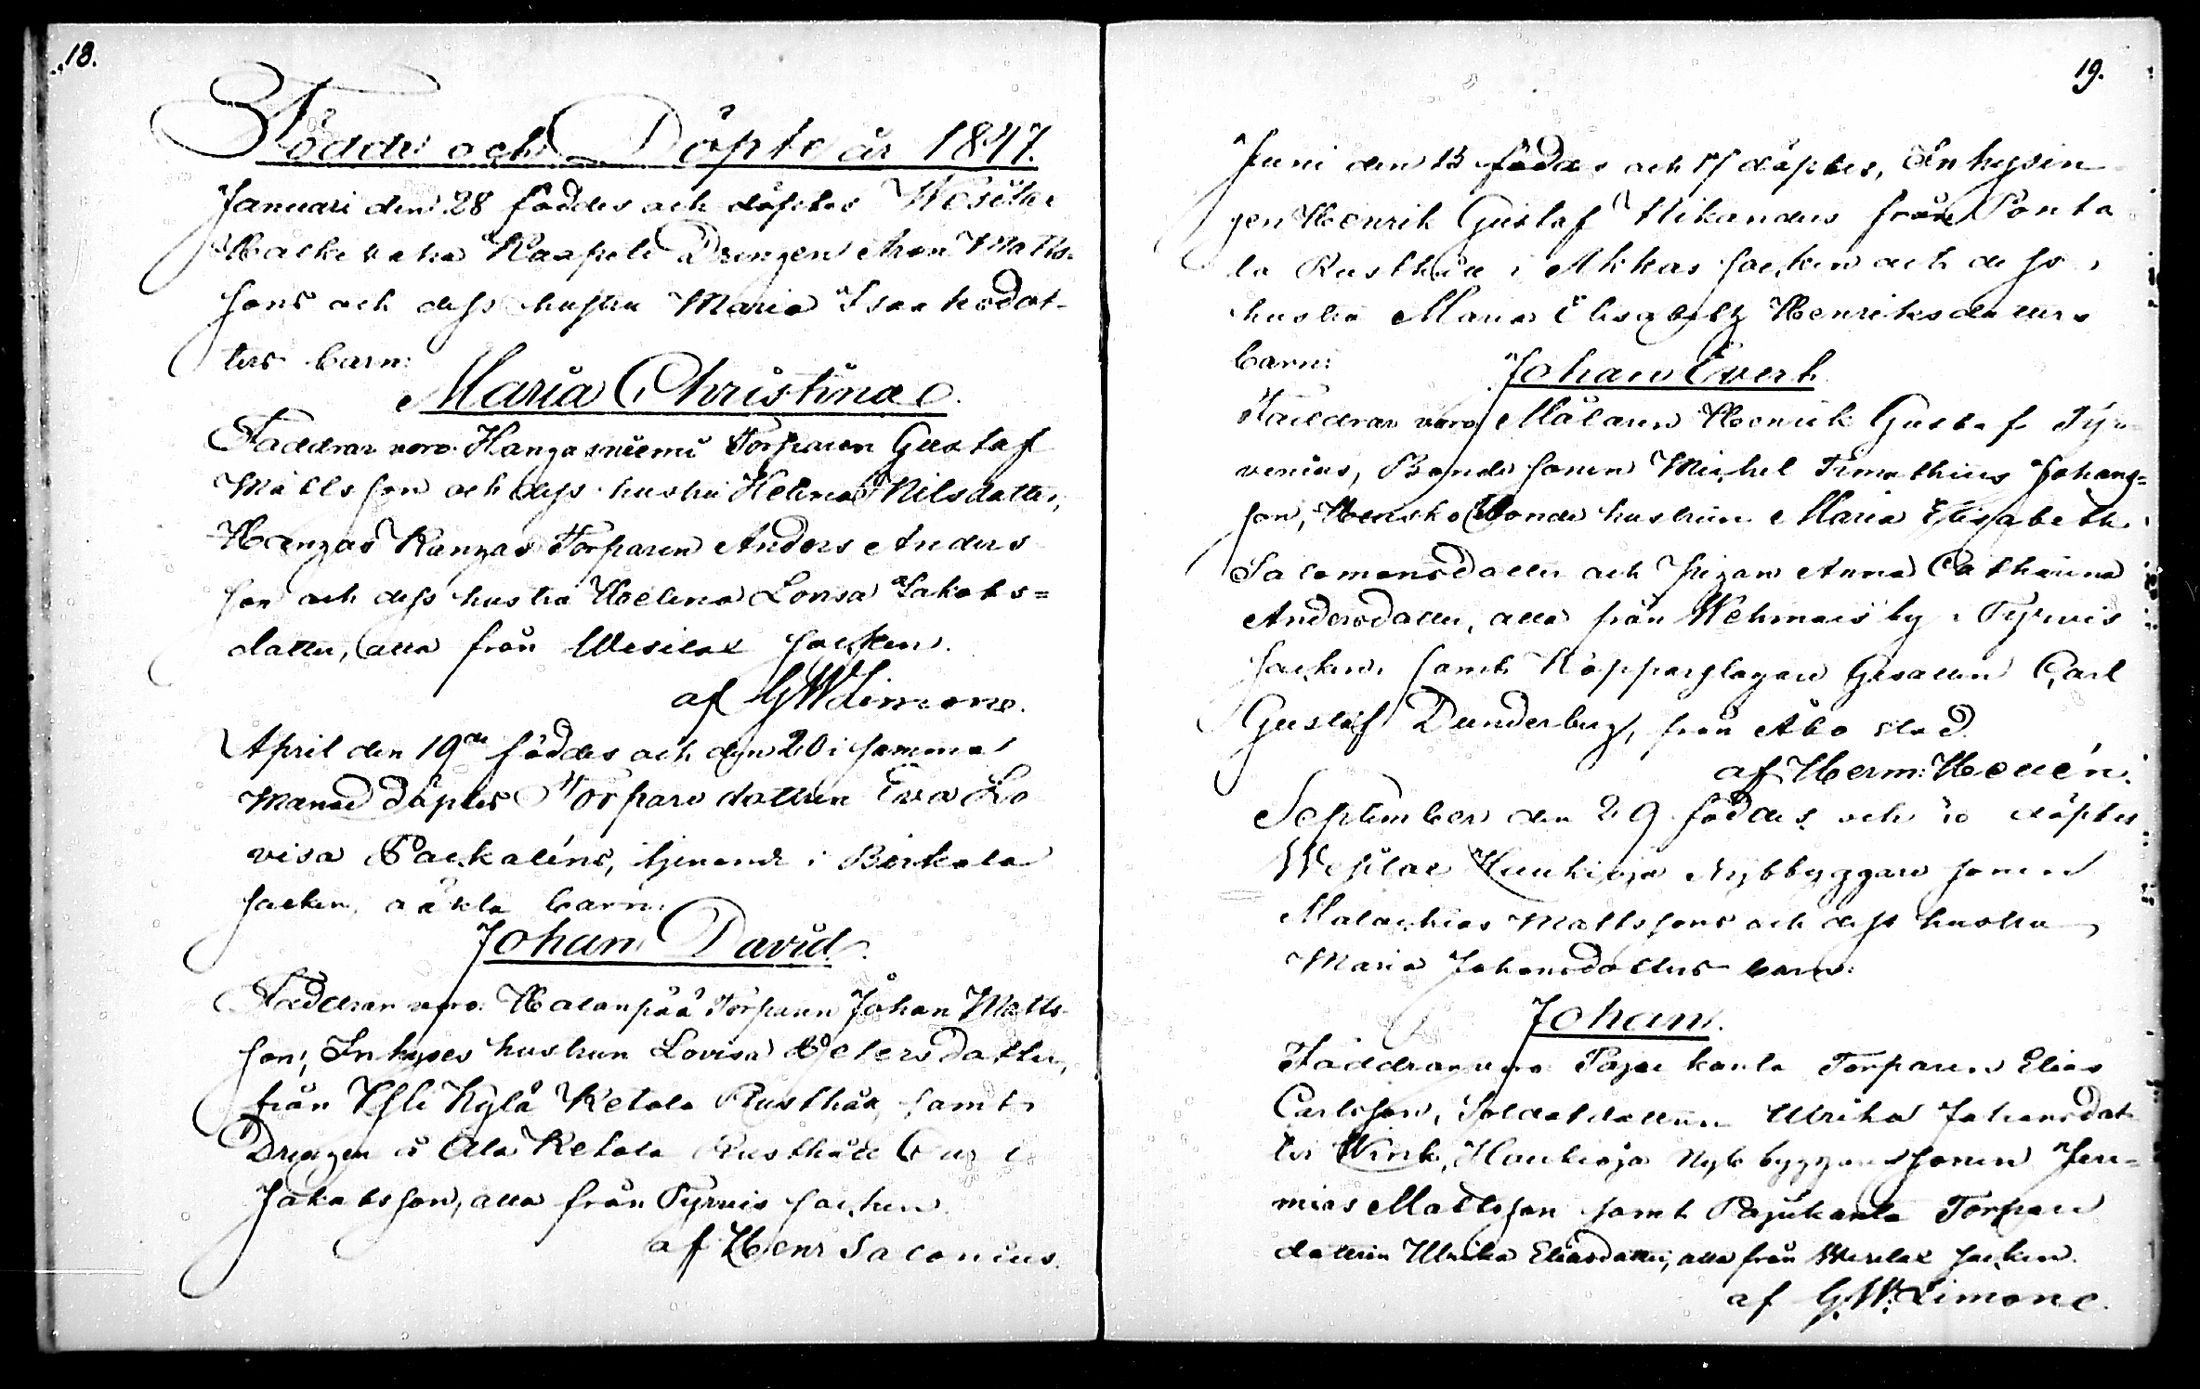 18.
Födde och Döpte år 1847.
Januari den 28 föddes och döptes
Kaapeli Drengen Aron Matts-
sons och dess hustru Maria Isaksdot-
ters barn:
Maria Christina.
Faddrar voro: Kangasniemi Torparen Gustaf
Mattsson och dess hustru Helena Nilsdotter,
Kangas Torparen Anders Anders
son och dess hustru Helena Lovisa Jakobs=
dotter, alla från Wesilax socken.
af GWLimone.
April den 19de föddes och den 20 i samma
Månad döptes Torpare dottren Eva Lo
visa Packaléns, tjenande i Birkala
socken, oäkta barn:
Johan David.
Faddrar voro: Torparen Johan Matts-
son, Inhyses hustrun Lovisa Petersdotter,
från Yli Kylä Ketola Rusthåll, samt
Drengen å Ala Ketola Rusthåll
Jakobsson, alla från Tyrvis socken.
af Henr Saconius.
19.
Juni den 15 föddes och 17 döptes, Inhysin
gen Henrik Gustaf Mikanders från Ponta
la Rusthåll i Akkas socken och dess
hustru Maria Elisabeth Henriksdotters
barn:
Johan Evert.
Faddrar voro Målaren Henrik Gustaf Tyr-
venius, Bonde sonen Michel Timothius Johans=
son, Bonde hustrun Maria Elisabeth
Salomonsdotter och pigan Anna Catharina
Andersdotter, alla från Wehmais by i Tyrvis
socken, samt Kopparslagare Gesällen Carl
Gustaf Dunderberg, från Åbo stad.
af Herm: Hellén.
September den 29 föddes och 30 döptes
Wesilax Haukioja Nybbyggare sonen
Malachias Mattssons och dess hustru
Maria Johansdotters barn:
Johan.
Faddrar voro: Pajukanta Torparen Elias
Carlsson, Soldatdottren Ulrika Johansdot
ter Wink, Haukioja Nybbyggaresonen Jere=
mias Mattsson samt Pajukanta Torpare
dottren Ulrika Eliasdotter, alla från Wesilax socken.
af G.W. Limone.